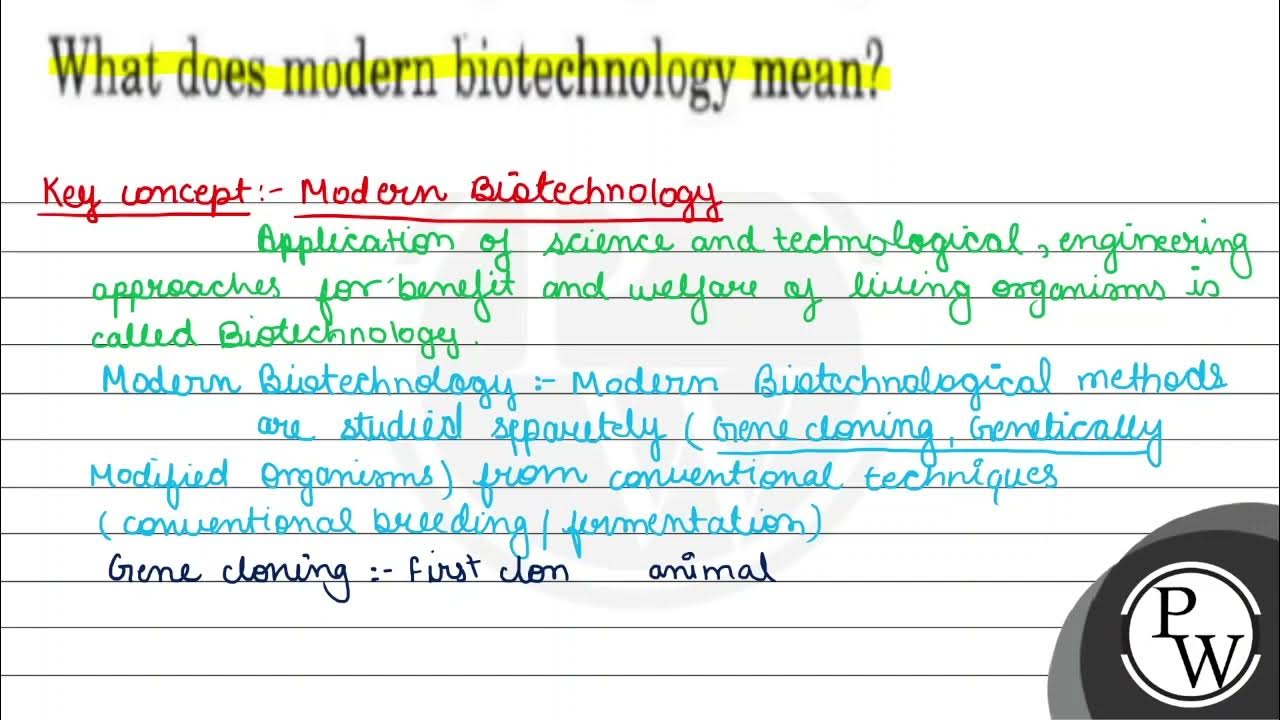 What does modern biotechnology mean?
Key concept:- Modern Biotechnology
Application of science and technological, engineering
approaches for benefit and welfare of living organisms is
called Biotechnology.
Modern Biotechnology :- Modern Biotechnological methods
are studied separetely (Gene cloning, Genetically
Modified Organisms) from conventional techniques
(conventional breeding/fermentation)
Gene cloning :- First clon animal
P
W